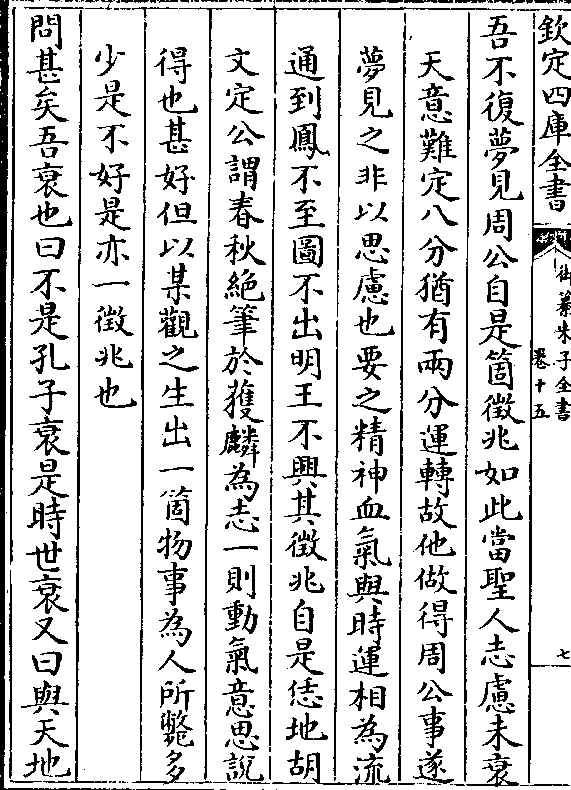 欽定四庫全書
御纂朱子全書
卷十五
七
吾不復夢見周公自是箇徵兆如此當聖人志慮未衰
天意難定八分猶有兩分運轉故他做得周公事遂
夢見之非以思慮也要之精神血氣與時運相為流
通到鳳不至圖不出明王不興其徵兆自是恁地胡
文定公謂春秋絶筆於獲麟為志一則動氣意思說
得也甚好但以某觀之生出一箇物事為人所斃多
少是不好是亦一徵兆也
問甚矣吾衰也曰不是孔子衰是時世衰又曰與天地